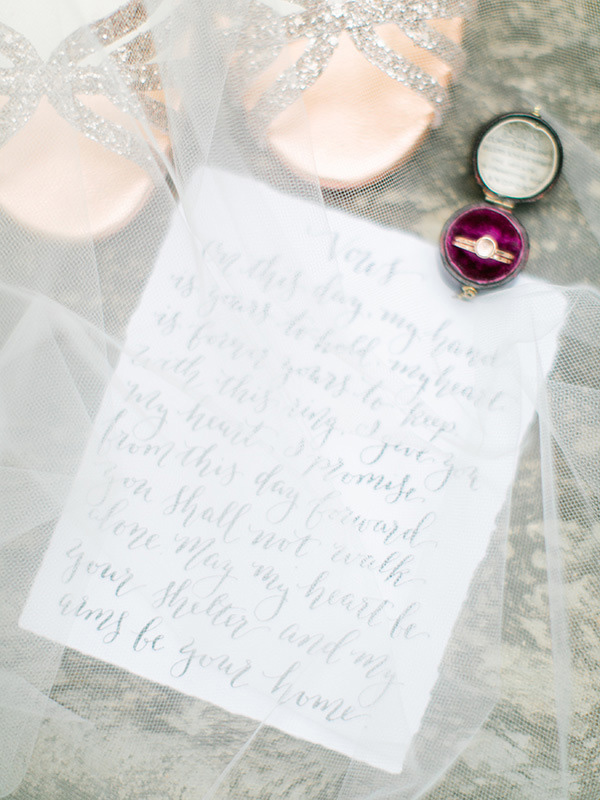 Vows
on this day, my hand
is yours to hold. my heart
is forever yours to keep
with this ring, I give you
my heart I promise
from this day forward
you shall not walk
alone may my heart be
your shelter and my
arms be your home.